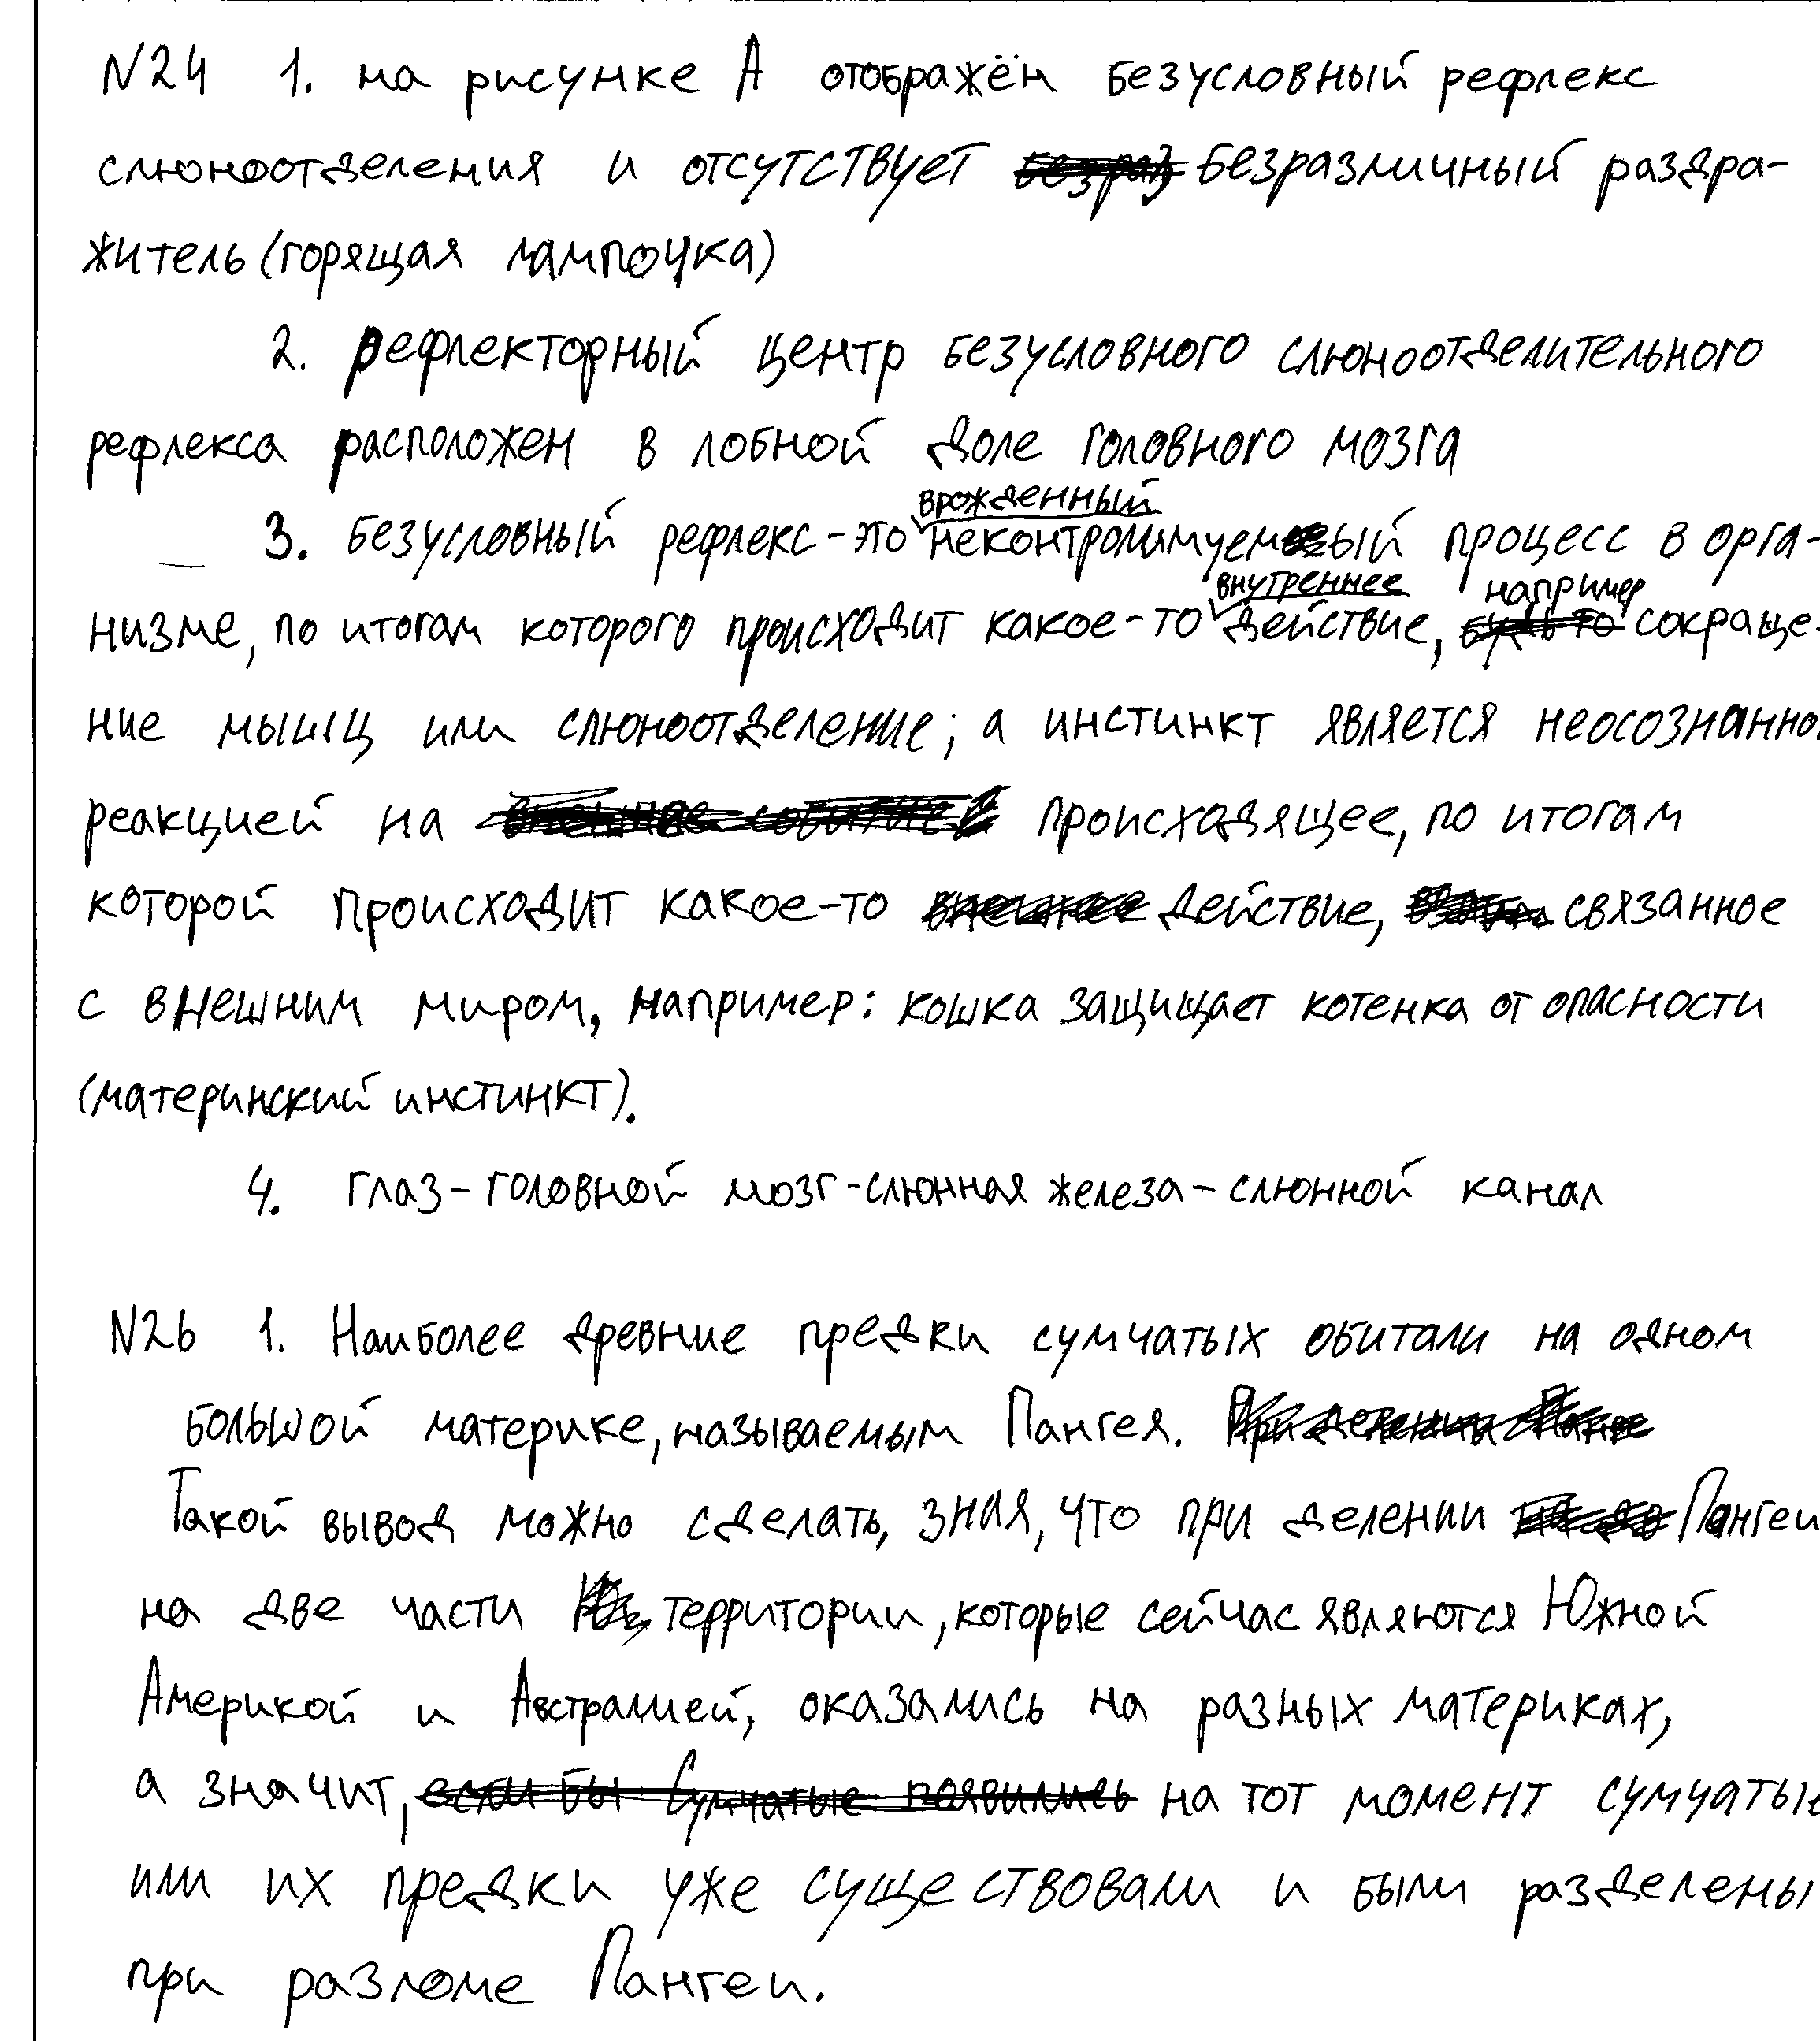 N24 1. на рисунке А отображён безусловный рефлекс
слюноотделения и отсутствует безразличный раздра-
житель (горящая лампочка)
2. рефлекторный центр безусловного слюноотделительного
рефлекса расположен в лобной доле головного мозга
врожденный
3. безусловный рефлекс - это неконтролимуемый процесс в орга-
внутреннее например
низме, по итогам которого происходит какое-то действие, будь то сокраще-
ние мышц или слюноотделение; а инстинкт является неосознанно
реакцией на внешнее событие происходящее, по итогам
которой происходит какое-то внешнее действие, связанное
с внешним миром, например: кошка защищает котенка от опасности
(материнский инстинкт).
4. глаз - головной мозг - слюнная железа - слюнной канал
N26 1. Наиболее древние предки сумчатых обитали на одном
большой материке, называемым Пангея. При делении
Такой вывод можно сделать, зная, что при делении Пангеи
на две части территории, которые сейчас являются Южной
Америкой и Австралией, оказались на разных материках,
а значит, если бы Сумчатые появились на тот момент сумчатые
или их предки уже существовали и были разделены
при разломе Пангеи.